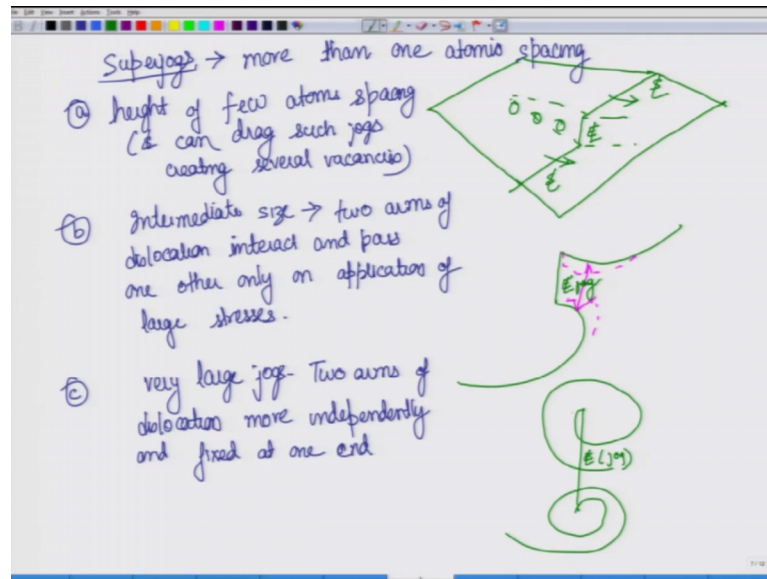 Superjogs → more than one atomic spacing
(a) height of few atoms spacing
(⊥ can drag such jogs
creating several vacancies)
(b) Intermediate size → two arms of
dislocation interact and pass
one other only on application of
large stresses.
(c) very large jogs - Two arms of
dislocation move independently
and fixed at one end
jog
(jog)